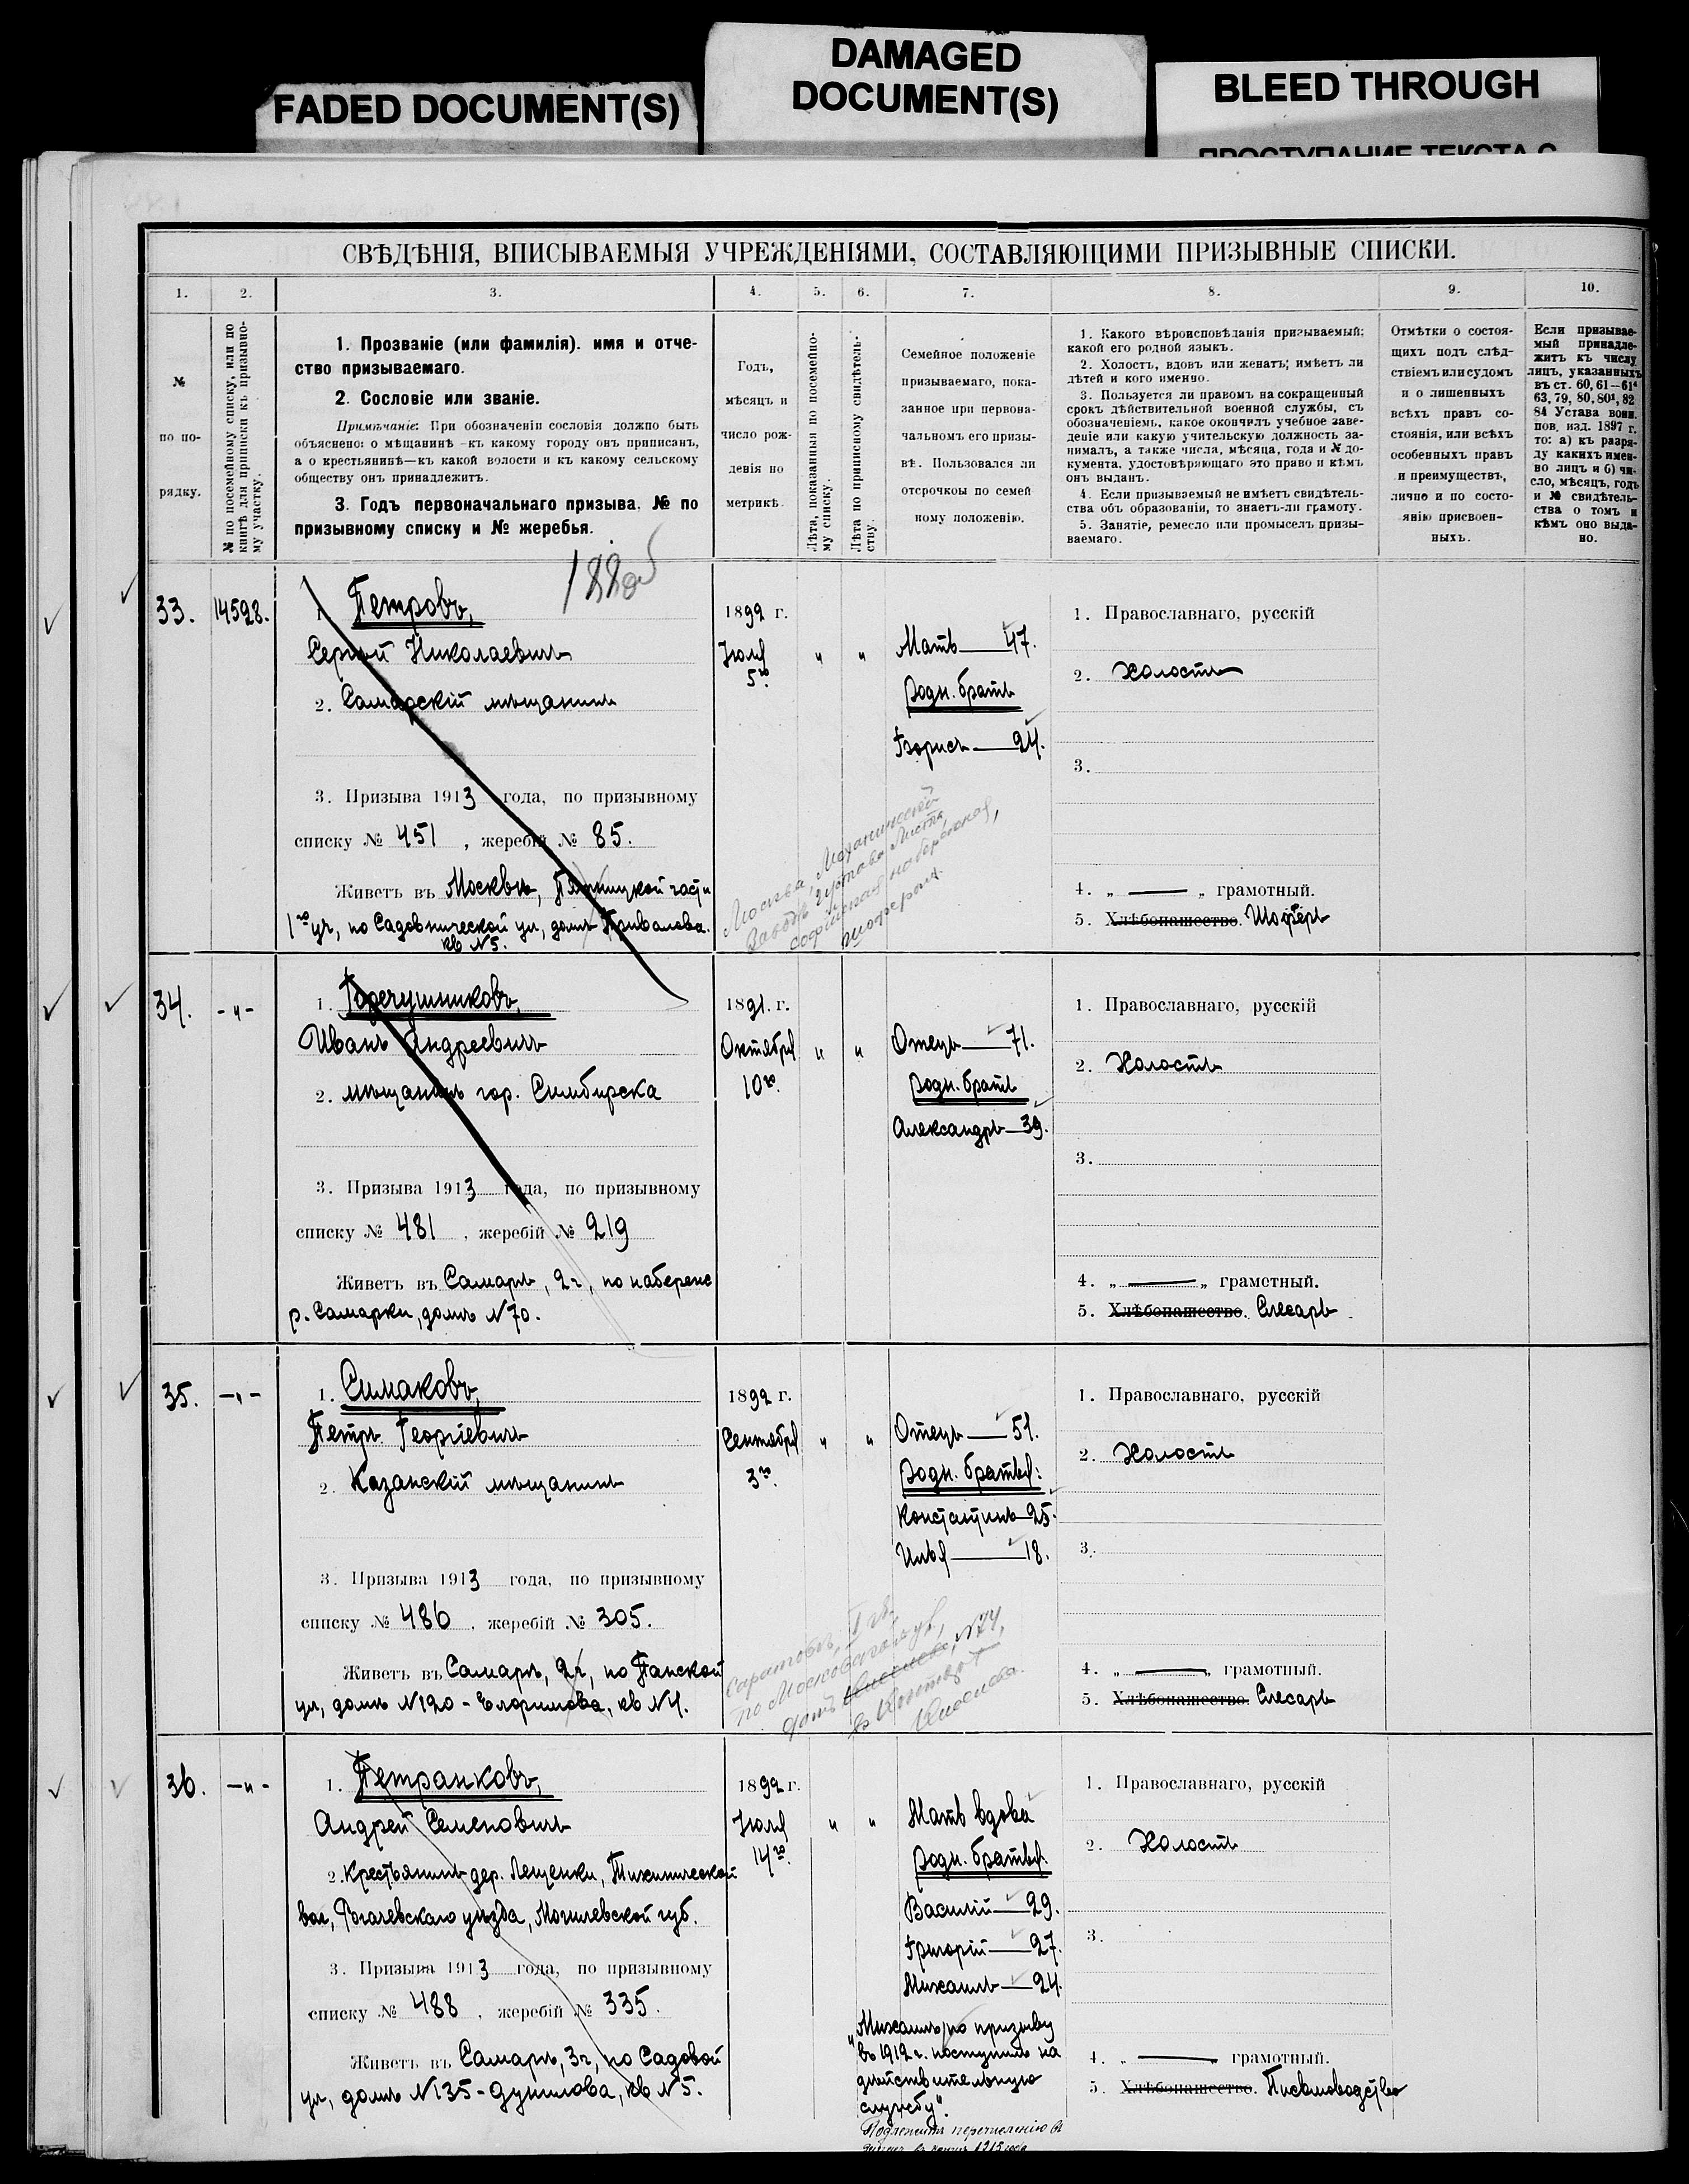 FADED DOCUMENT(S)
DAMAGED
DOCUMENT(S)
BLEED THROUGH
ПРОСТУПАНИЕ ТЕКСТА С
СВѢДѢНІЯ, ВПИСЫВАЕМЫЯ УЧРЕЖДЕНІЯМИ, СОСТАВЛЯЮЩИМИ ПРИЗЫВНЫЕ СПИСКИ.
1.
2.
3.
4.
5.
6.
7.
8.
9.
10.
№
по по-
рядку.
№ по посемейному списку, или по
книгѣ для приписки къ призывно-
му участку.
1. Прозваніе (или фамилія). имя и отче-
ство призываемаго.
2. Сословіе или званіе.
Примѣчаніе: При обозначеніи сословія должно быть
объяснено: о мѣщанинѣ—къ какому городу онъ приписанъ,
а о крестьянинѣ—къ какой волости и къ какому сельскому
обществу онъ принадлежитъ.
3. Годъ первоначальнаго призыва, № по
призывному списку и № жеребья.
Годъ,
мѣсяцъ и
число рож-
денія по
метрикѣ.
Лѣта, показанныя по посемейно-
му списку.
Лѣта по приписному свидѣтель-
ству.
Семейное положеніе
призываемаго, пока-
занное при первона-
чальномъ его призы-
вѣ. Пользовался ли
отсрочкою по семей
ному положенію.
1. Какого вѣроисповѣданія призываемый;
какой его родной языкъ.
2. Холостъ, вдовъ или женатъ; имѣетъ ли
дѣтей и кого именно.
3. Пользуется ли правомъ на сокращенный
срокъ дѣйствительной военной службы, съ
обозначеніемъ, какое окончилъ учебное заве-
деніе или какую учительскую должность за-
нималъ, а также числа, мѣсяца, года и № до-
кумента, удостовѣряющаго это право и кѣмъ
онъ выданъ.
4. Если призываемый не имѣетъ свидѣтель-
ства объ образованіи, то знаетъ-ли грамоту.
5. Занятіе, ремесло или промыселъ призы-
ваемаго.
Отмѣтки о состоя-
щихъ подъ слѣд-
ствіемъ или судомъ
и о лишенныхъ
всѣхъ правъ со-
стоянія, или всѣхъ
особенныхъ правъ
и преимуществъ,
лично и по состо-
янію присвоен-
ныхъ.
Если призывае-
мый принадле-
житъ къ числу
лицъ, указанныхъ
въ ст. 60, 61—61⁴
63, 79, 80, 80¹, 82
84 Устава воин.
пов. изд. 1897 г.
то: а) къ разря-
ду какихъ имен-
но лицъ и б) чи-
сло, мѣсяцъ, годъ
и № свидѣтель-
ства о томъ и
кѣмъ оно выда-
но.
33.
14528.
1. Петровъ,
Сергѣй Николаевичъ
2. Самарскій мѣщанинъ
3. Призыва 1913 года, по призывному
списку № 451, жеребій № 85.
Живетъ въ Москвѣ, Пятницкой части
1го уч, по Садовнической ул, домъ Привалова.
кв №5.
1892 г.
Іюля
5го.
"
"
Мать—47.
Родн. братъ
Борисъ—24.
Москва, Механическій
Заводъ Густава Листъ,
Софійская набережная,
шоферомъ.
1. Православнаго, русскій
2. Холостъ
3.
4. „ — „ грамотный.
5. Хлѣбопашество. Шофёръ
34.
-"-
1.
Иванъ Андреевичъ
2. мѣщанинъ гор. Симбирска
3. Призыва 1913 года, по призывному
списку № 481, жеребій № 219
Живетъ въ Самарѣ, 2ч, по набереж
р. Самарки, домъ №70.
1891. г.
Октября
10го.
"
"
Отецъ—71.
Родн. братъ
Александръ—39.
1. Православнаго, русскій
2. Холостъ
3.
4. „ — „ грамотный.
5. Хлѣбопашество. Слесарь
35.
-"-
1. Симаковъ,
Петръ Георгіевичъ
2. Казанскій мѣщанинъ
3. Призыва 1913 года, по призывному
списку № 486, жеребій № 305.
Живетъ въ Самарѣ, 2ч, по Панской
ул, домъ №120 - кв №4.
1892 г.
Сентября
3го.
"
"
Отецъ—51.
Родн. братья:
Константинъ—25.
Илья—18.
Саратовъ,
по Московской ул,
домъ №74,
1. Православнаго, русскій
2. Холостъ
3.
4. „ — „ грамотный.
5. Хлѣбопашество. Слесарь
36.
-"-
1. Петранковъ,
Андрей Семеновичъ
2. Крестьянинъ дер. Лещенки, Тихиничской
вол, Рогачевскаго уѣзда, Могилевской губ.
3. Призыва 1913 года, по призывному
списку № 488, жеребій № 335.
Живетъ въ Самарѣ, 3ч, по Садовой
ул, домъ №135 - кв №5.
1892 г.
Іюля
14го.
"
"
Мать вдова
Родн. братья
Василій—29.
Григорій—27.
Михаилъ—24.
„Михаилъ по призыву
въ 1912 г. поступилъ на
дѣйствительную
службу".
Подлежитъ перечисленію въ
1. Православнаго, русскій
2. Холостъ
3.
4. „ — „ грамотный.
5. Хлѣбопашество. Письмоводство